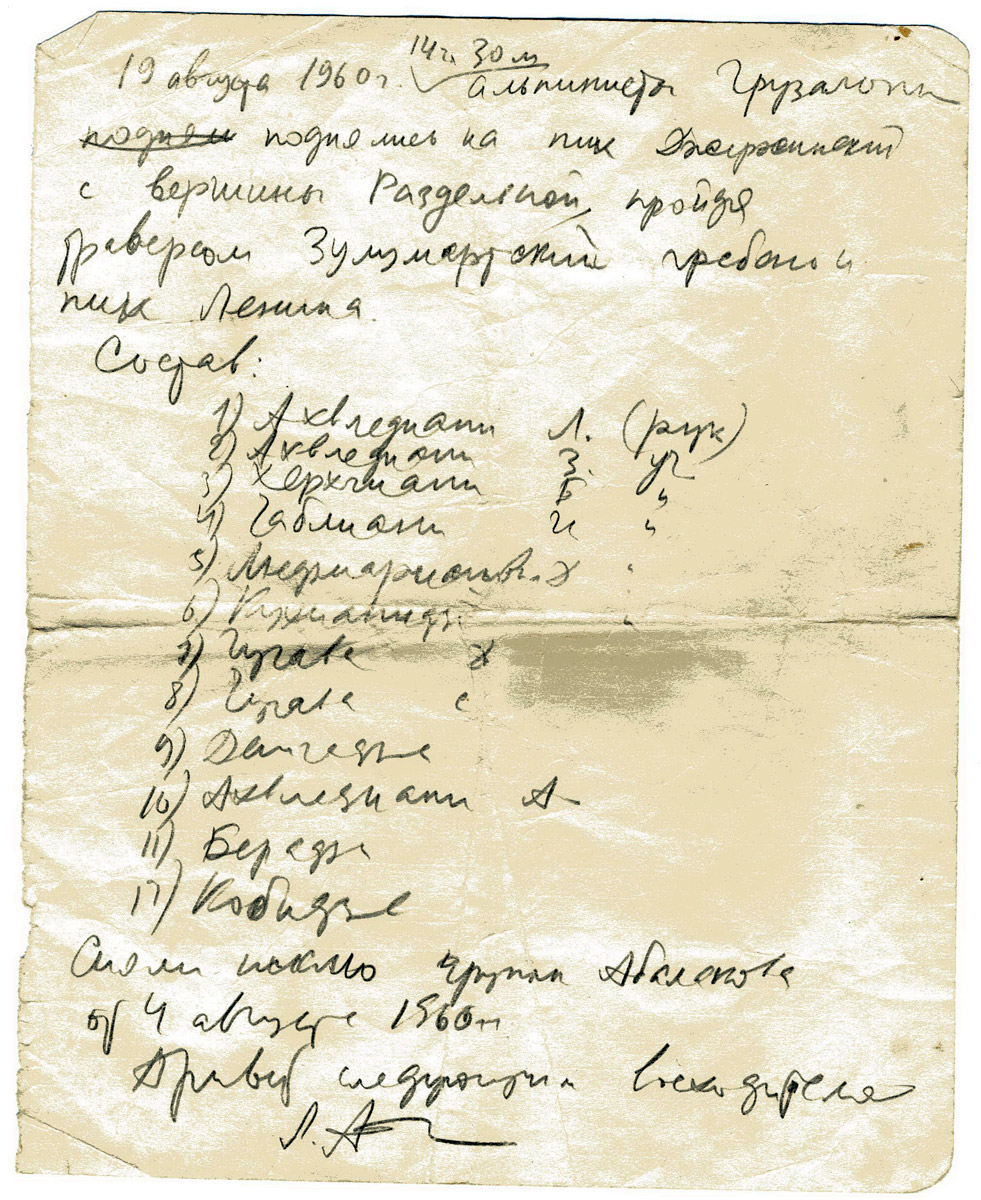 14 ч. 30 м
19 августа 1960 г. альпинисты Грузалпкл
подняли поднялись на пик Дзержинский
с вершины Раздельной, пройдя
траверсом Зулумартский гребень и
пик Ленина.
Состав:
1) Ахвледиани Л. (рук)
2) Ахвледиани З. уч
3) Хергиани Б "
4) Габлиани И "
5) Медзмариашв. Д "
6) Кухианидзе "
7) Гугава Д
8) Гугава С
9) Дангадзе
10) Ахвледиани А
11) Берадзе
12) Кобидзе
Сняли записку группы Абалакова
от 4 августа 1960 г.
Привет следующим восходителям
Л. А